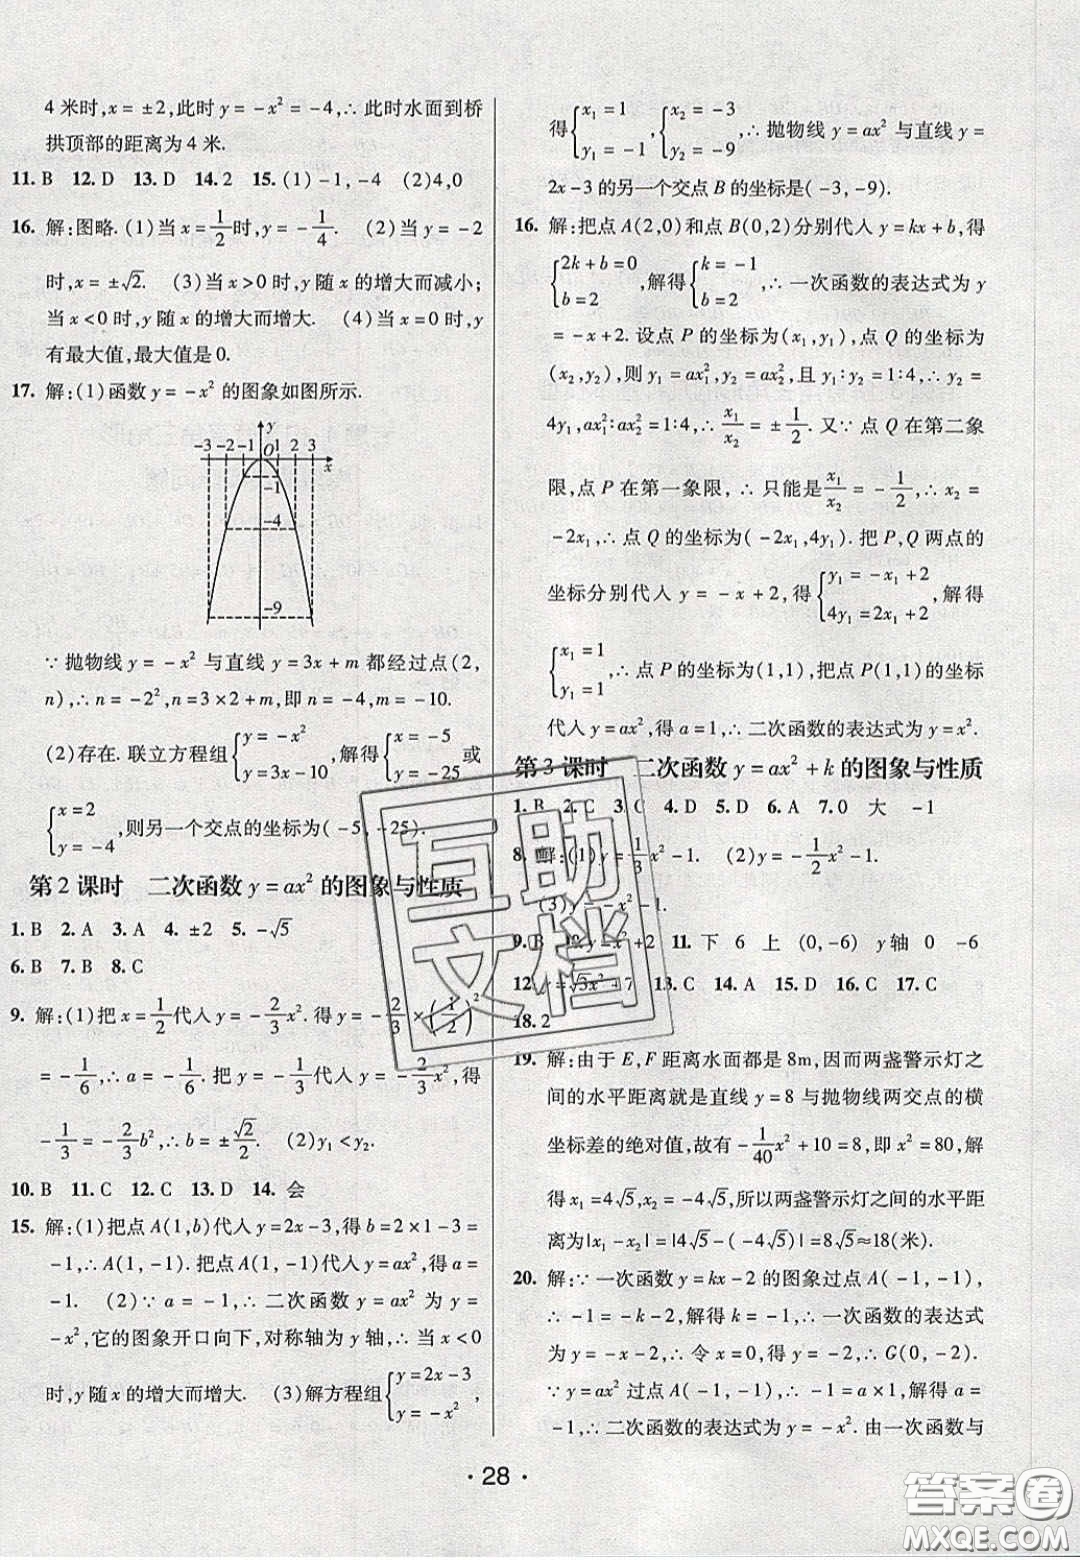 4 米时,x = ±2,此时 y = -x² = -4,∴ 此时水面到桥
拱顶部的距离为 4 米.
11. B 12. D 13. D 14. 2 15. (1) -1, -4 (2)4,0
16. 解:图略. (1)当 x = 1/2 时,y = -1/4. (2)当 y = -2
时,x = ±√2. (3)当 x > 0 时,y 随 x 的增大而减小;
当 x < 0 时,y 随 x 的增大而增大. (4)当 x = 0 时,y
有最大值,最大值是 0.
17. 解:(1)函数 y = -x² 的图象如图所示.
y
-3 -2 -1 O 1 2 3 x
-1
-4
-9
∵ 抛物线 y = -x² 与直线 y = 3x + m 都经过点(2,
n),∴ n = -2²,n = 3 × 2 + m,即 n = -4,m = -10.
(2)存在. 联立方程组 { y = -x² y = 3x - 10 ,解得 { x = -5 y = -25 或
{ x = 2 y = -4 ,则另一个交点的坐标为( -5, -25).
第 2 课时 二次函数 y = ax² 的图象与性质
1. B 2. A 3. A 4. ±2 5. -√5
6. B 7. B 8. C
9. 解:(1)把 x = 1/2 代入 y = -2/3 x². 得 y = -2/3 × (1/2)²
= -1/6,∴ a = -1/6. 把 y = -1/3 代入 y = -2/3 x²,得
-1/3 = -2/3 b²,∴ b = ±√2/2. (2)y₁ < y₂.
10. B 11. C 12. C 13. D 14. 会
15. 解:(1)把点 A(1,b)代入 y = 2x - 3,得 b = 2 × 1 - 3 =
-1,∴ A(1, -1). 把点 A(1, -1)代入 y = ax²,得 a =
-1. (2)∵ a = -1,∴ 二次函数 y = ax² 为 y =
-x²,它的图象开口向下,对称轴为 y 轴,∴ 当 x < 0
时,y 随 x 的增大而增大. (3)解方程组 { y = 2x - 3 y = -x² ,
得 { x₁ = 1 y₁ = -1 , { x₂ = -3 y₂ = -9 ,∴ 抛物线 y = ax² 与直线 y =
2x - 3 的另一个交点 B 的坐标是( -3, -9).
16. 解:把点 A(2,0)和点 B(0,2)分别代入 y = kx + b,得
{ 2k + b = 0 b = 2 ,解得 { k = -1 b = 2 ,∴ 一次函数的表达式为 y
= -x + 2. 设点 P 的坐标为(x₁,y₁),点 Q 的坐标为
(x₂,y₂),则 y₁ = ax₁²,y₂ = ax₂²,且 y₁:y₂ = 1:4,∴ y₂ =
4y₁,ax₁²:ax₂² = 1:4,∴ x₁/x₂ = ±1/2. 又∵ 点 Q 在第二象
限,点 P 在第一象限,∴ 只能是 x₁/x₂ = -1/2,∴ x₂ =
-2x₁,∴ 点 Q 的坐标为( -2x₁,4y₁). 把 P,Q 两点的
坐标分别代入 y = -x + 2,得 { y₁ = -x₁ + 2 4y₁ = 2x₁ + 2 ,解得
{ x₁ = 1 y₁ = 1 ,∴ 点 P 的坐标为(1,1),把点 P(1,1)的坐标
代入 y = ax²,得 a = 1,∴ 二次函数的表达式为 y = x².
第 3 课时 二次函数 y = ax² + k 的图象与性质
1. B 2. C 3. C 4. D 5. D 6. A 7. 0 大 -1
8. 解:(1)y = 1/3 x² - 1. (2)y = -1/2 x² - 1.
(3)y = -x² - 1.
9. B 10. y = x² + 2 11. 下 6 上 (0, -6) y 轴 0 -6
12. y = √3x² + 7 13. C 14. A 15. D 16. C 17. C
18. 2
19. 解:由于 E,F 距离水面都是 8m,因而两盏警示灯之
间的水平距离就是直线 y = 8 与抛物线两交点的横
坐标差的绝对值,故有 -1/40 x² + 10 = 8,即 x² = 80,解
得 x₁ = 4√5,x₂ = -4√5,所以两盏警示灯之间的水平距
离为|x₁ - x₂| = |4√5 - ( -4√5)| = 8√5 ≈ 18(米).
20. 解:∵ 一次函数 y = kx - 2 的图象过点 A( -1, -1),
∴ -1 = -k - 2,解得 k = -1,∴ 一次函数的表达式
为 y = -x - 2,∴ 令 x = 0,得 y = -2,∴ G(0, -2).
∵ y = ax² 过点 A( -1, -1),∴ -1 = a × 1,解得 a =
-1,∴ 二次函数的表达式为 y = -x². 由一次函数与
· 28 ·
互助
文档
答案圈
MXQE.COM